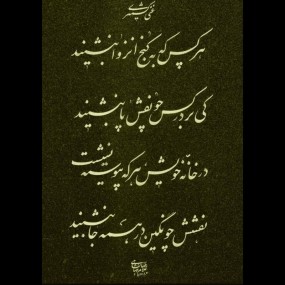 هر کس که به کنج انزوا بنشیند
کی بر در کس چو نقش پا بنشیند
در خانه خویش هر که پیوسته نشست
نقشش چو نگین در همه جا بنشیند